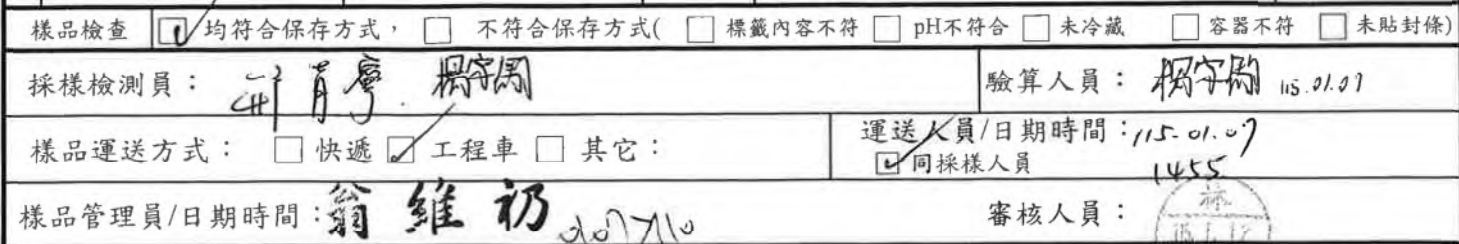 樣品檢查 ☑ 均符合保存方式， □ 不符合保存方式( □ 標籤內容不符 □ pH不符合 □ 未冷藏 □ 容器不符 □ 未貼封條)
採樣檢測員： 驗算人員： 115.01.07
樣品運送方式： □ 快遞 ☑ 工程車 □ 其它： 運送人員/日期時間：115.01.07
☑ 同採樣人員 1455
樣品管理員/日期時間：翁維礽 審核人員： 林